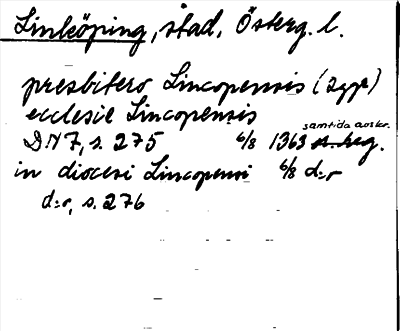 Linköping, stad, Österg. l.
presbitero Lincopensis (2 ggr)
ecclesie Lincopensis
samtida avskr.
DN 7, s. 275 6/8 1363 st. beg.
in diocesi Lincopensi 6/8 d:r
d:r, s. 276